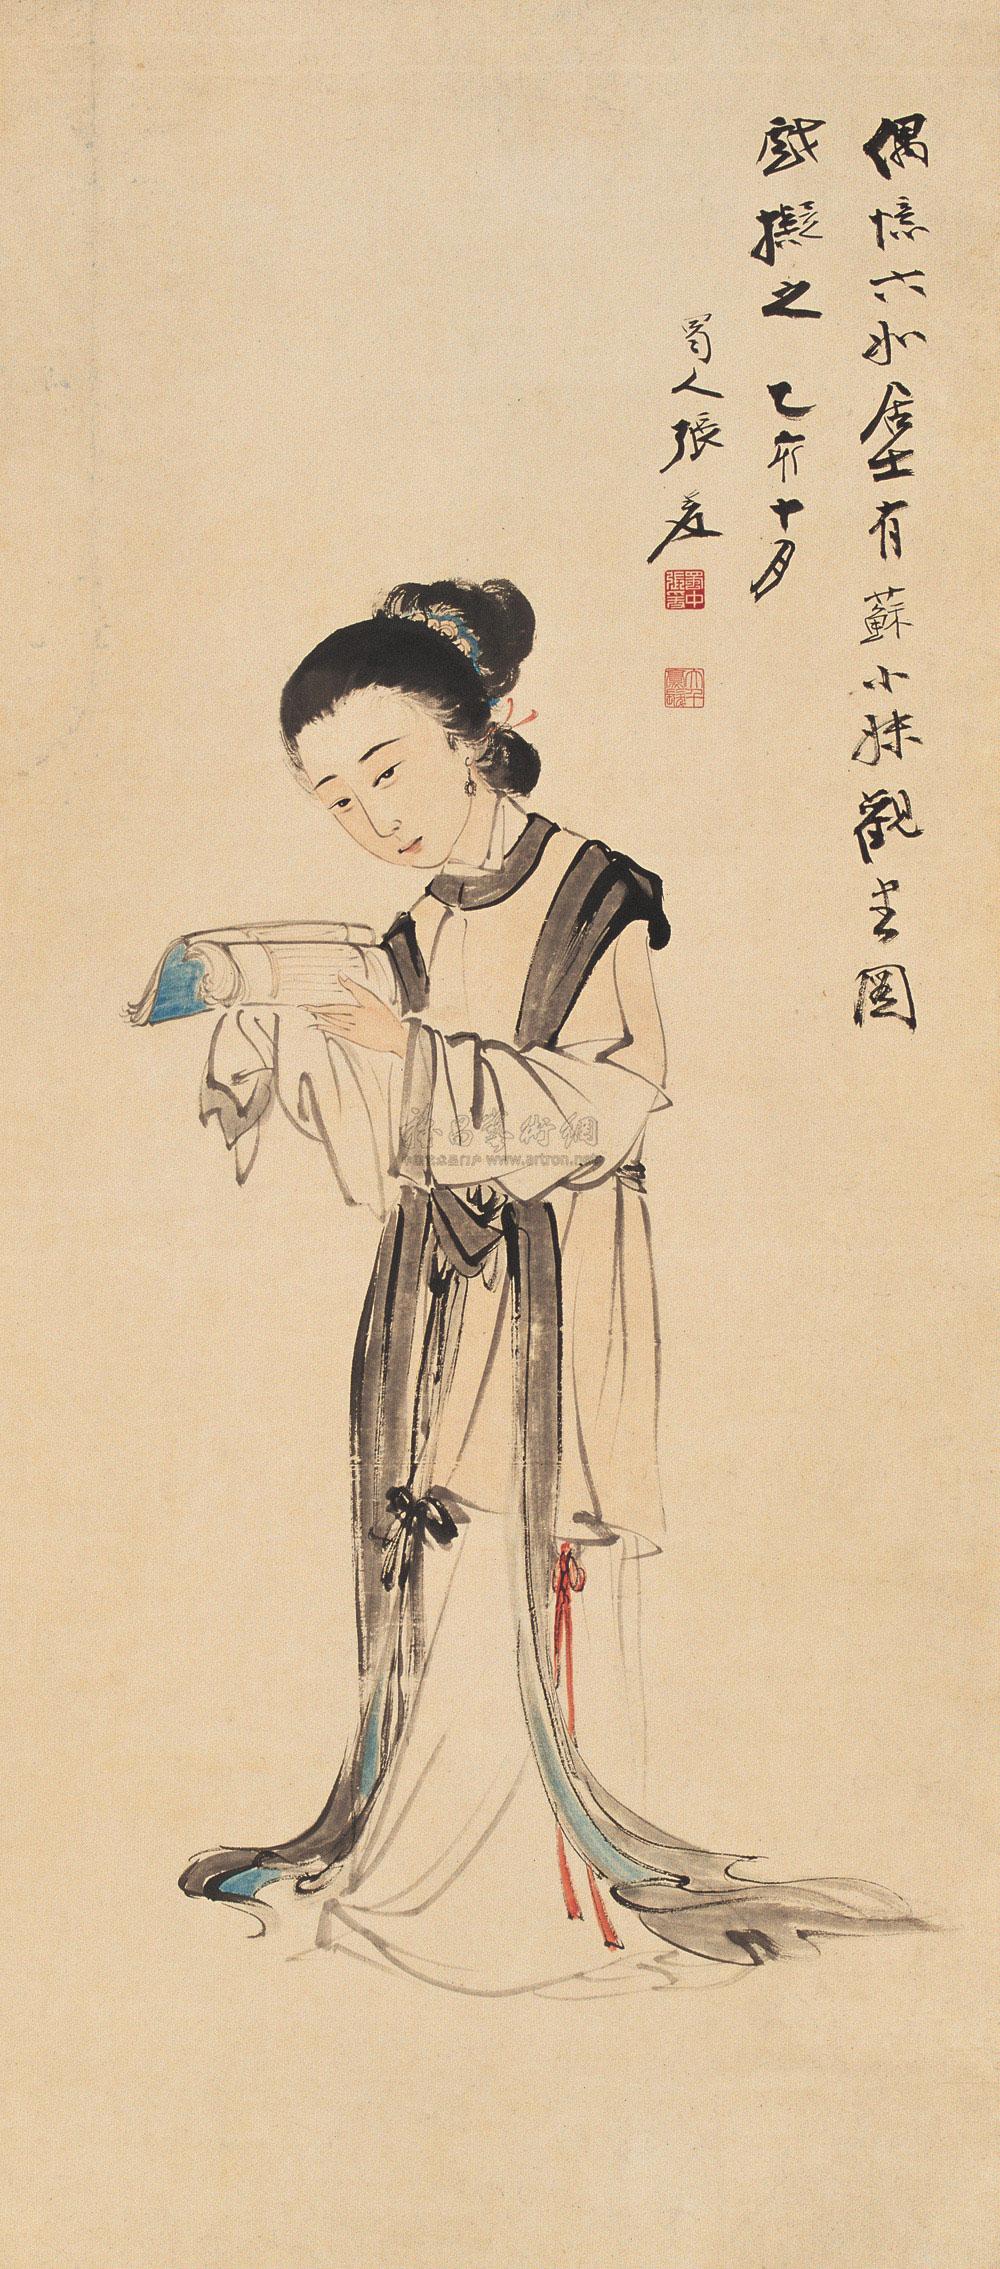 偶憶六如居士有蘇小妹觀書圖
戲擬之 乙亥十月
蜀人張爰
蜀中張爰
雅昌藝術網
中国艺术品门户 www.artron.net